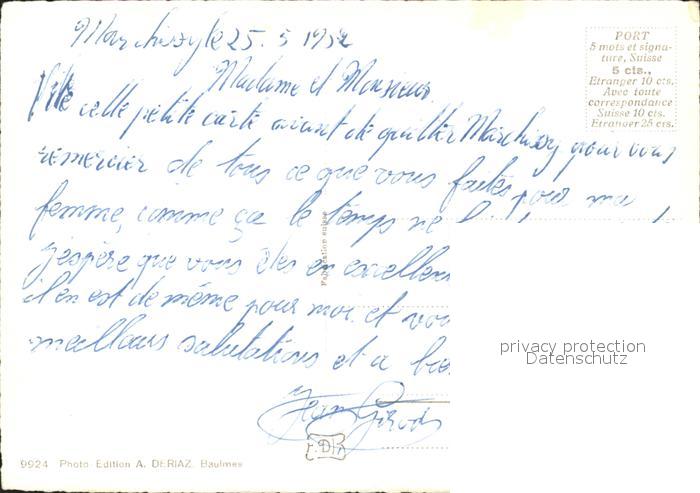 Marchissy le 25. 5 1952
Madame et Monsieur.
Vite cette petite carte avant de quitter Marchissy pour vous
remercier de tous ce que vous faites pour ma
femme, comme ça le temps ne
j'espère que vous êtes en excellen
il en est de même pour moi. et vou
meilleurs salutations et a bie
Jean Girod
PORT
5 mots et signa-
ture, Suisse
5 cts.,
Etranger 10 cts.
Avec toute
correspondance
Suisse 10 cts.
Etranger 25 cts.
Fabrication suisse
privacy protection
Datenschutz
9924 Photo Edition A. DERIAZ, Baulmes